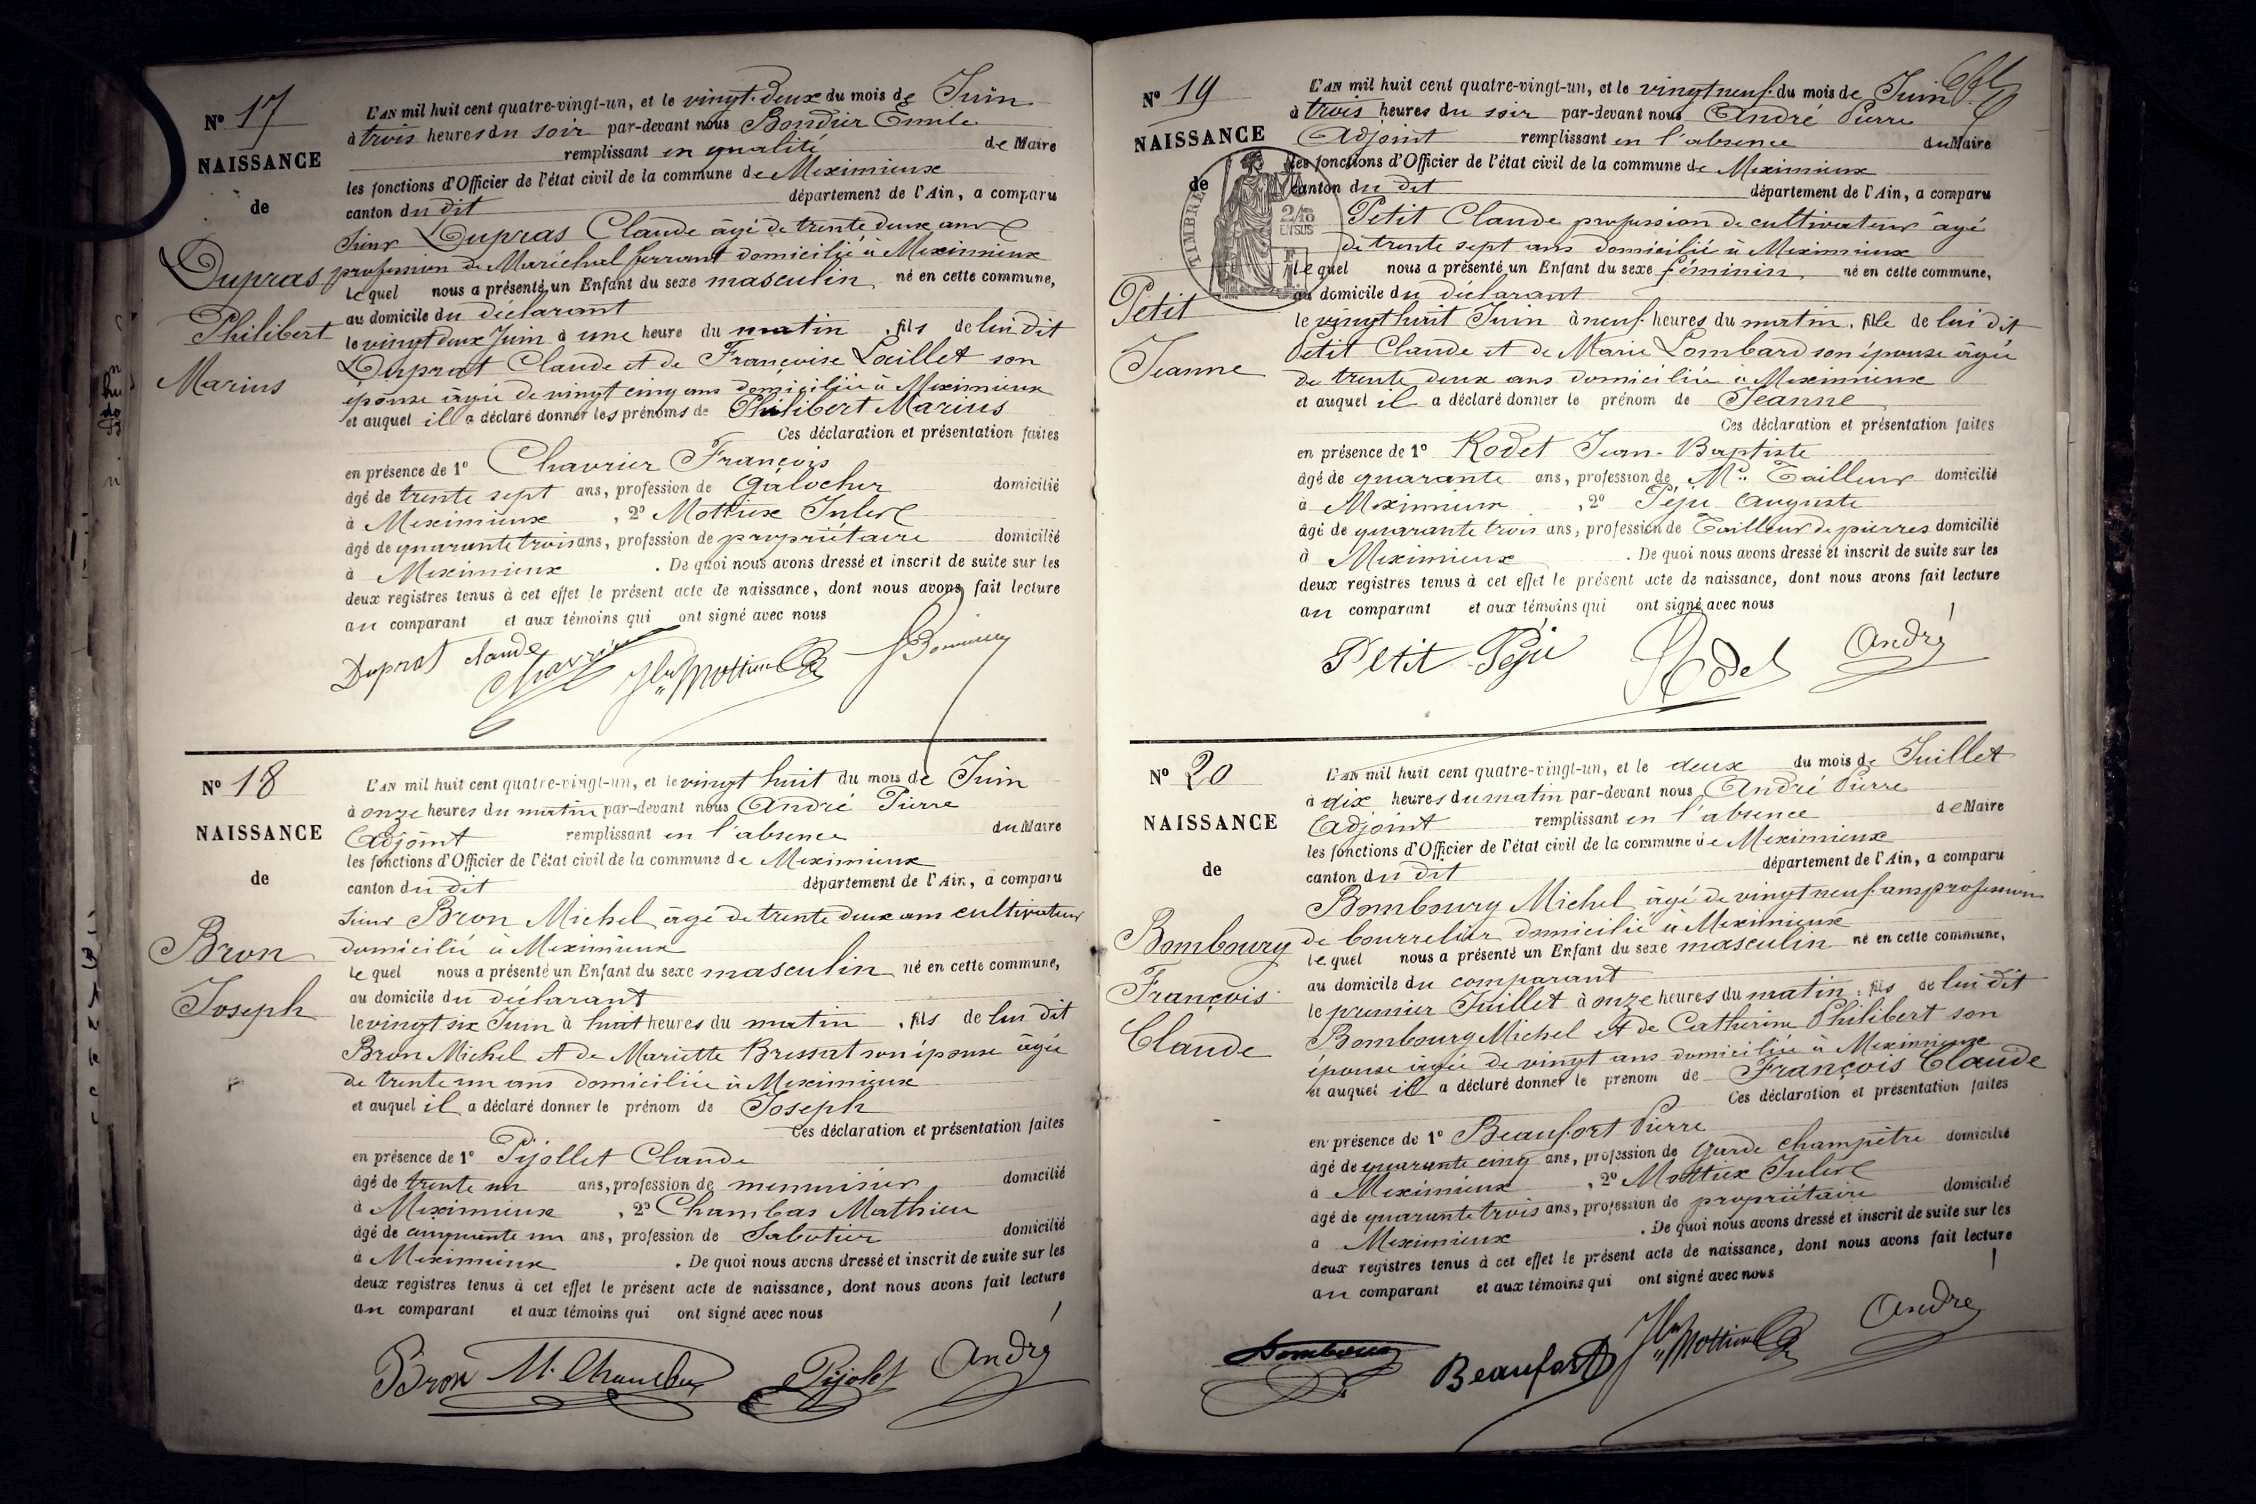 N° 17
NAISSANCE
de
Dupras
Philibert
Marius
L'AN mil huit cent quatre-vingt-un, et le vingt-deux du mois de Juin
à trois heures du soir par-devant nous Bondier Emile
remplissant en qualité de Maire
les fonctions d'Officier de l'état civil de la commune de Meximieux
canton du dit département de l'Ain, a comparu
Sieur Dupras Claude âgé de trente deux ans
profession de Maréchal ferrant domicilié à Meximieux
lequel nous a présenté un Enfant du sexe masculin né en cette commune,
au domicile du déclarant
le vingt deux Juin à une heure du matin, fils de lui dit
Duprat Claude et de Françoise Laillet son
épouse âgée de vingt cinq ans domiciliée à Meximieux
et auquel il a déclaré donner les prénoms de Philibert Marius
Ces déclaration et présentation faites
en présence de 1° Chavrier François
âgé de trente sept ans, profession de Galocher domicilié
à Meximieux, 2° Mottieux
âgé de quarante trois ans, profession de propriétaire domicilié
à Meximieux. De quoi nous avons dressé et inscrit de suite sur les
deux registres tenus à cet effet le présent acte de naissance, dont nous avons fait lecture
au comparant et aux témoins qui ont signé avec nous
Duprat Claude
N° 18
NAISSANCE
de
Bron
Joseph
L'AN mil huit cent quatre-vingt-un, et le vingt huit du mois de Juin
à onze heures du matin par-devant nous André Pierre
Adjoint remplissant en l'absence du Maire
les fonctions d'Officier de l'état civil de la commune de Meximieux
canton du dit département de l'Ain, a comparu
Sieur Bron Michel âgé de trente deux ans cultivateur
domicilié à Meximieux
lequel nous a présenté un Enfant du sexe masculin né en cette commune,
au domicile du déclarant
le vingt six Juin à huit heures du matin, fils de lui dit
Bron Michel et de Mariette Bressat son épouse âgée
de trente un ans domiciliée à Meximieux
et auquel il a déclaré donner le prénom de Joseph
Ces déclaration et présentation faites
en présence de 1° Pijollet Claude
âgé de trente un ans, profession de menuisier domicilié
à Meximieux, 2° Chambas Mathieu
âgé de cinquante un ans, profession de Sabotier domicilié
à Meximieux. De quoi nous avons dressé et inscrit de suite sur les
deux registres tenus à cet effet le présent acte de naissance, dont nous avons fait lecture
au comparant et aux témoins qui ont signé avec nous
Bron Pijolet André
N° 19
NAISSANCE
de
TIMBRE
Petit
Jeanne
L'AN mil huit cent quatre-vingt-un, et le vingt neuf du mois de Juin
à trois heures du soir par-devant nous André Pierre
Adjoint remplissant en l'absence du Maire
les fonctions d'Officier de l'état civil de la commune de Meximieux
canton du dit département de l'Ain, a comparu
Petit Claude profession de cultivateur âgé
de trente sept ans domicilié à Meximieux
lequel nous a présenté un Enfant du sexe féminin né en cette commune,
au domicile du déclarant
le vingt huit Juin à neuf heures du matin, fille de lui dit
Petit Claude et de Marie Lombard son épouse âgée
de trente deux ans domiciliée à Meximieux
et auquel il a déclaré donner le prénom de Jeanne
Ces déclaration et présentation faites
en présence de 1° Rodet Jean-Baptiste
âgé de quarante ans, profession de Md Tailleur domicilié
à Meximieux, 2° Péju Auguste
âgé de quarante trois ans, profession de Tailleur de pierres domicilié
à Meximieux. De quoi nous avons dressé et inscrit de suite sur les
deux registres tenus à cet effet le présent acte de naissance, dont nous avons fait lecture
au comparant et aux témoins qui ont signé avec nous
Petit Péju Rodet André
N° 20
NAISSANCE
de
Bombourg
François
Claude
L'AN mil huit cent quatre-vingt-un, et le deux du mois de Juillet
à dix heures du matin par-devant nous André Pierre
Adjoint remplissant en l'absence de Maire
les fonctions d'Officier de l'état civil de la commune de Meximieux
canton du dit département de l'Ain, a comparu
Bombourg Michel âgé de vingt neuf ans profession
de bourrelier domicilié à Meximieux
lequel nous a présenté un Enfant du sexe masculin né en cette commune,
au domicile du comparant
le premier Juillet à onze heures du matin, fils de lui dit
Bombourg Michel et de Catherine Philibert son
épouse âgée de vingt ans domiciliée à Meximieux
et auquel il a déclaré donner le prénom de François Claude
Ces déclaration et présentation faites
en présence de 1° Beaufort Pierre
âgé de quarante cinq ans, profession de garde champêtre domicilié
à Meximieux, 2° Mottieux
âgé de quarante trois ans, profession de propriétaire domicilié
à Meximieux. De quoi nous avons dressé et inscrit de suite sur les
deux registres tenus à cet effet le présent acte de naissance, dont nous avons fait lecture
au comparant et aux témoins qui ont signé avec nous
Bombourg Beaufort André